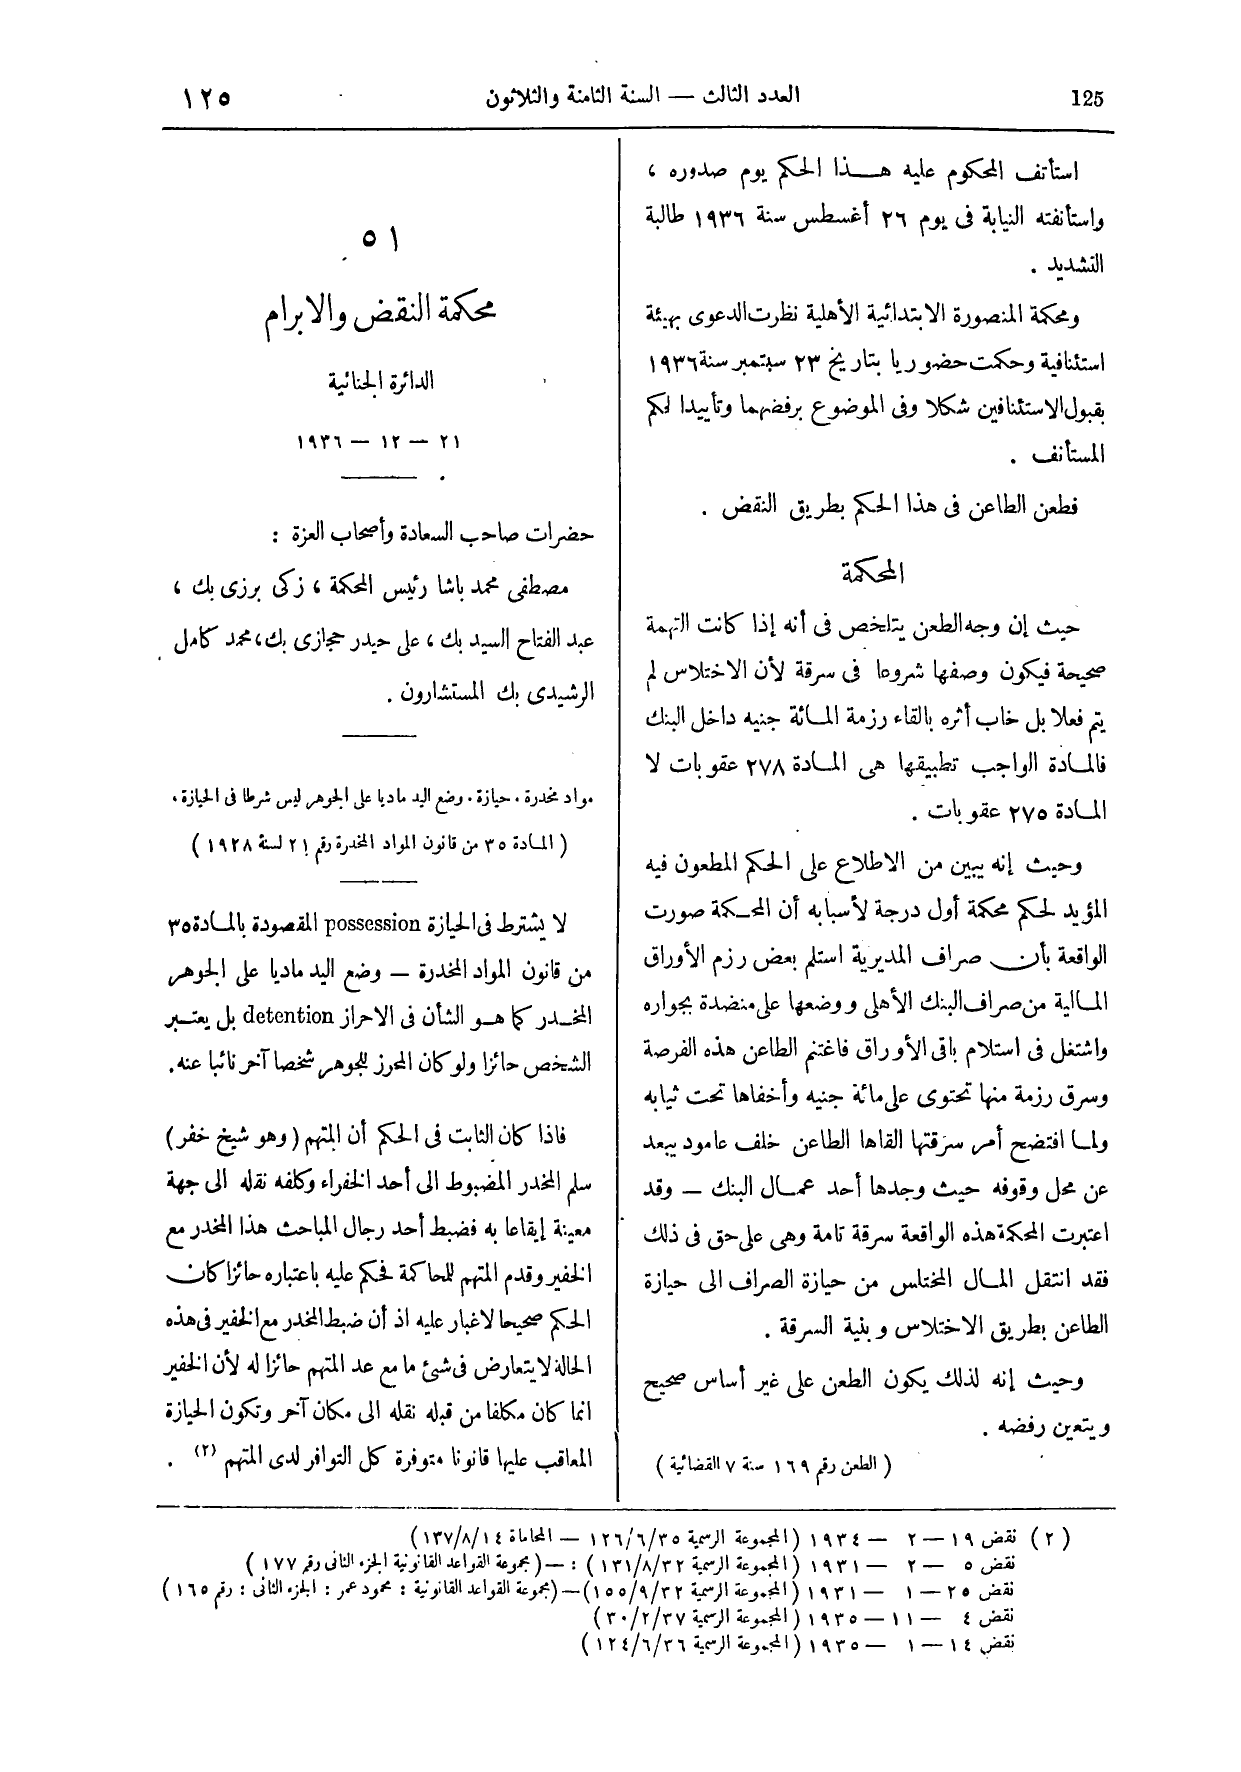 125 العدد الثالث — السنة الثامنة والثلاثون ١٢٥
استأنف المحكوم عليه هذا الحكم يوم صدوره ،
واستأنفته النيابة فى يوم ٢٦ أغسطس سنة ١٩٣٦ طالبة
التشديد .
ومحكمة المنصورة الابتدائية الأهلية نظرت الدعوى بهيئة
استئنافية وحكمت حضوريا بتاريخ ٢٣ سبتمبر سنة ١٩٣٦
بقبول الاستئنافين شكلا وفى الموضوع برفضهما وتأييد الحكم
المستأنف .
فطعن الطاعن فى هذا الحكم بطريق النقض .
المحكمة
حيث إن وجه الطعن يتلخص فى أنه إذا كانت التهمة
صحيحة فيكون وصفها شروعا فى سرقة لأن الاختلاس لم
يتم فعلا بل خاب أثره بالقاء رزمة المائة جنيه داخل البنك
فالمادة الواجب تطبيقها هى المادة ٢٧٨ عقوبات لا
المادة ٢٧٥ عقوبات .
وحيث إنه يبين من الاطلاع على الحكم المطعون فيه
المؤيد لحكم محكمة أول درجة لأسبابه أن المحكمة صورت
الواقعة بأن صراف المديرية استلم بعض رزم الأوراق
المالية من صراف البنك الأهلى ووضعها على منضدة بجواره
واشتغل فى استلام باقى الأوراق فاغتنم الطاعن هذه الفرصة
وسرق رزمة منها تحتوى على مائة جنيه وأخفاها تحت ثيابه
ولما افتضح أمر سرقتها القاها الطاعن خلف عامود يبعد
عن محل وقوفه حيث وجدها أحد عمال البنك — وقد
اعتبرت المحكمة هذه الواقعة سرقة تامة وهى على حق فى ذلك
فقد انتقل المال المختلس من حيازة الصراف الى حيازة
الطاعن بطريق الاختلاس وبنية السرقة .
وحيث إنه لذلك يكون الطعن على غير أساس صحيح
ويتعين رفضه .
( الطعن رقم ١٦٩ سنة ٧ القضائية )
٥١
محكمة النقض والابرام
الدائرة الجنائية
٢١ — ١٢ — ١٩٣٦
حضرات صاحب السعادة وأصحاب العزة :
مصطفى محمد باشا رئيس المحكمة ، زكى برزى بك ،
عبد الفتاح السيد بك ، على حيدر حجازى بك ، محمد كامل
الرشيدى بك المستشارون .
مواد مخدرة . حيازة . وضع اليد ماديا على الجوهر ليس شرطا فى الحيازة .
( المادة ٣٥ من قانون المواد المخدرة رقم ٢١ لسنة ١٩٢٨ )
لا يشترط فى الحيازة possession المقصودة بالمادة ٣٥
من قانون المواد المخدرة — وضع اليد ماديا على الجوهر
المخدر كما هو الشأن فى الاحراز detention بل يعتبر
الشخص حائزا ولو كان المحرز للجوهر شخصا آخر نائبا عنه .
فاذا كان الثابت فى الحكم أن المتهم ( وهو شيخ خفر )
سلم المخدر المضبوط الى أحد الخفراء وكلفه نقله الى جهة
معينة إيقاعا به فضبط أحد رجال المباحث هذا المخدر مع
الخفير وقدم المتهم للمحاكمة فحكم عليه باعتباره حائزا كان
الحكم صحيحا لاغبار عليه اذ أن ضبط المخدر مع الخفير فى هذه
الحالة لا يتعارض فى شئ ما مع عد المتهم حائزا له لأن الخفير
انما كان مكلفا من قبله نقله الى مكان آخر وتكون الحيازة
المعاقب عليها قانونا متوفرة كل التوافر لدى المتهم (٢) .
(٢) نقض ١٩ — ٢ — ١٩٣٤ (المجموعة الرسمية ١٢٦/٦/٣٥ — المحاماة ١٣٧/٨/١٤)
نقض ٥ — ٢ — ١٩٣١ (المجموعة الرسمية ١٣١/٨/٣٢) : — (مجموعة القواعد القانونية الجزء الثانى رقم ١٧٧)
نقض ٢٥ — ١ — ١٩٣١ (المجموعة الرسمية ١٥٥/٩/٣٢) — (مجموعة القواعد القانونية : محمود عمر : الجزء الثانى : رقم ١٦٥)
نقض ٤ — ١١ — ١٩٣٥ (المجموعة الرسمية ٣٠/٢/٣٧)
نقض ١٤ — ١ — ١٩٣٥ (المجموعة الرسمية ١٢٤/٦/٣٦)